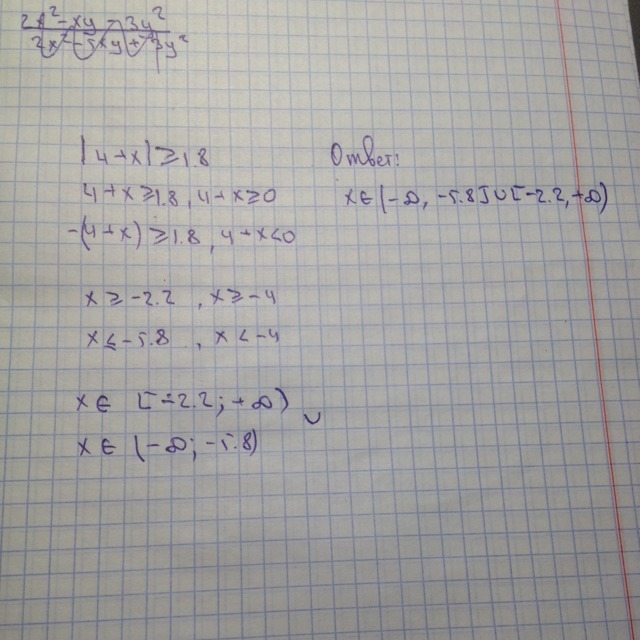 2x² - xy - 3y²
2x² - 5xy + 3y²
|4+x| ≥ 1.8
4+x ≥ 1.8, 4+x ≥ 0
-(4+x) ≥ 1.8, 4+x < 0
x ≥ -2.2, x ≥ -4
x ≤ -5.8, x < -4
x ∈ [-2.2; +∞)
∪
x ∈ (-∞; -5.8)
Ответ:
x ∈ (-∞, -5.8] ∪ [-2.2, +∞)